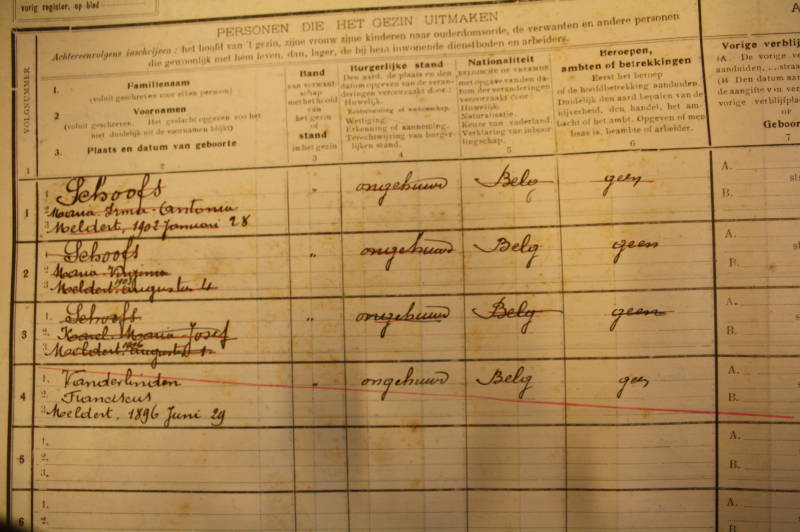 vorig register, op blad
PERSONEN DIE HET GEZIN UITMAKEN
Achtereenvolgens inschrijven : het hoofd van 't gezin, zijne vrouw zijne kinderen naar ouderdomsorde, de verwanten en andere personen
die gewoonlijk met hem leven, dan, lager, de bij hem inwonende dienstboden en arbeiders.
VOLGNUMMER
1. Familienaam
(voluit geschreven voor elken persoon)
2 Voornamen
(voluit geschreven. Het geslacht opgeven zoo het
niet duidelijk uit de voornamen blijkt)
3. Plaats en datum van geboorte
Band
van verwant-
schap
met het hoofd
van
het gezin
of
stand
in het gezin
Burgerlijke stand
Den aard, de plaats en den
datum opgeven van de veran-
deringen veroorzaakt door:
Huwelijk.
Wettiging.
Erkenning of aanneming.
Terechtwijzing van burger-
lijken stand.
Nationaliteit
met opgave van den da-
tum der veranderingen
veroorzaakt door:
Huwelijk.
Naturalisatie.
Keuze van vaderland.
Verklaring van inboor-
lingschap.
Beroepen,
ambten of betrekkingen
Eerst het beroep
of de hoofdbetrekking aanduiden.
Duidelijk den aard bepalen van de
nijverheid, den handel, het am-
bacht of het ambt. Opgeven of men
baas is, beambte of arbeider.
Vorige verblij
(A. De vorige ve
aanduiden, ... straa
(B Den datum aan
de aangifte van ver
vorige verblijfplaat
OF
Geboor
1 2 3 4 5 6 7
1 1. Schoofs " ongehuwd Belg geen A.
2. Maria Irma Antonia B.
3. Meldert, 1902 Januari 28
2 1. Schoofs " ongehuwd Belg geen A.
2. Maria Virginia B.
3. Meldert, Augustus 4
3 1. Schoofs " ongehuwd Belg geen A.
2. Karel Maria Josef B.
3. Meldert, Augustus 1.
4 1. Vanderlinden " ongehuwd Belg geen A.
2. Franciscus B.
3. Meldert, 1896 Juni 29
5 1. A.
2. B.
3.
6 1. A.
2. B.